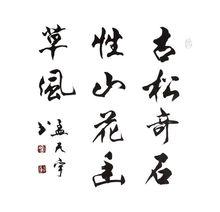 古松奇石
性山花玉
草風
孟天宇
书